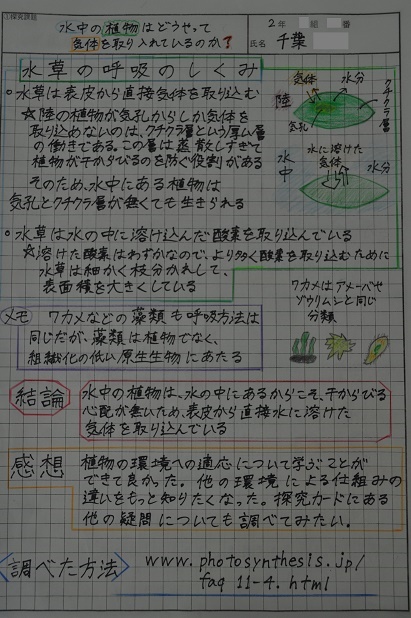 ①探究課題
水中の植物はどうやって
気体を取り入れているのか？
2年 組 番
氏名 千葉
水草の呼吸のしくみ
○水草は表皮から直接気体を取り込む
☆陸の植物が気孔からしか気体を
取り込めないのは、クチクラ層という厚い層
の働きである。この層は蒸散しすぎて
植物が干からびるのを防ぐ役割がある
そのため、水中にある植物は
気孔とクチクラ層が無くても生きられる
気体
水分
クチクラ層
陸
気孔
水中
水に溶けた
気体
水分
○水草は水の中に溶け込んだ酸素を取り込んでいる
☆溶けた酸素はわずかなので、より多く酸素を取り込むために
水草は細かく枝分かれして、
表面積を大きくしている
ワカメはアメーバや
ゾウリムシと同じ
分類
メモ
ワカメなどの藻類も呼吸方法は
同じだが、藻類は植物でなく、
組織化の低い原生生物にあたる
結論
水中の植物は、水の中にあるからこそ、干からびる
心配が無いため、表皮から直接水に溶けた
気体を取り込んでいる
感想
植物の環境への適応について学ぶことが
できて良かった。他の環境による仕組みの
違いをもっと知りたくなった。探究カードにある
他の疑問についても調べてみたい。
調べた方法
www.photosynthesis.jp/
faq 11-4.html